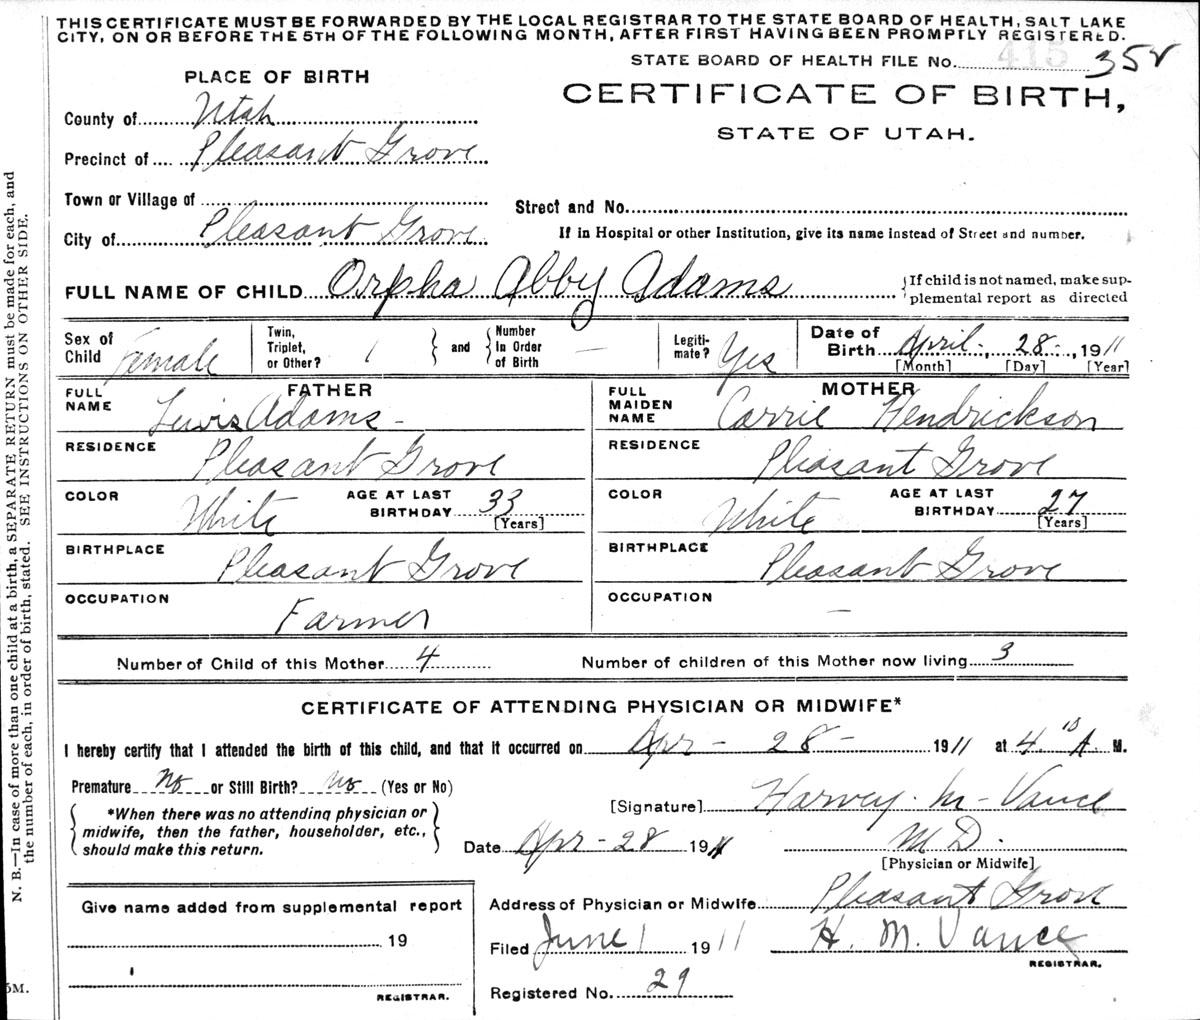 THIS CERTIFICATE MUST BE FORWARDED BY THE LOCAL REGISTRAR TO THE STATE BOARD OF HEALTH, SALT LAKE
CITY, ON OR BEFORE THE 5TH OF THE FOLLOWING MONTH, AFTER FIRST HAVING BEEN PROMPTLY REGISTERED.
415
STATE BOARD OF HEALTH FILE No. 352
PLACE OF BIRTH
CERTIFICATE OF BIRTH,
STATE OF UTAH.
County of Utah
Precinct of Pleasant Grove
Town or Village of
Street and No.
City of Pleasant Grove
If in Hospital or other Institution, give its name instead of Street and number.
FULL NAME OF CHILD Orpha Abby Adams
If child is not named, make sup-
plemental report as directed
Sex of Child Female
Twin, Triplet, or Other? 1
and
Number In Order of Birth —
Legiti-mate? Yes
Date of Birth April 28, 1911
[Month] [Day] [Year]
FATHER
FULL NAME Lewis Adams
RESIDENCE Pleasant Grove
COLOR White AGE AT LAST BIRTHDAY 33
[Years]
BIRTHPLACE Pleasant Grove
OCCUPATION Farmer
MOTHER
FULL MAIDEN NAME Carrie Hendrickson
RESIDENCE Pleasant Grove
COLOR White AGE AT LAST BIRTHDAY 27
[Years]
BIRTHPLACE Pleasant Grove
OCCUPATION —
Number of Child of this Mother 4 Number of children of this Mother now living 3
CERTIFICATE OF ATTENDING PHYSICIAN OR MIDWIFE*
I hereby certify that I attended the birth of this child, and that it occurred on Apr - 28 - 1911 at 4 10 A. M.
Premature No or Still Birth? No (Yes or No)
*When there was no attending physician or
midwife, then the father, householder, etc.,
should make this return.
[Signature] Harvey M - Vance
Date Apr - 28 1911 M D.
[Physician or Midwife]
Address of Physician or Midwife Pleasant Grove
Filed June 1 1911 H. M. Vance
REGISTRAR.
Registered No. 29
Give name added from supplemental report
19
REGISTRAR.
N. B.—In case of more than one child at a birth, a SEPARATE RETURN must be made for each, and
the number of each, in order of birth, stated. SEE INSTRUCTIONS ON OTHER SIDE.
5M.